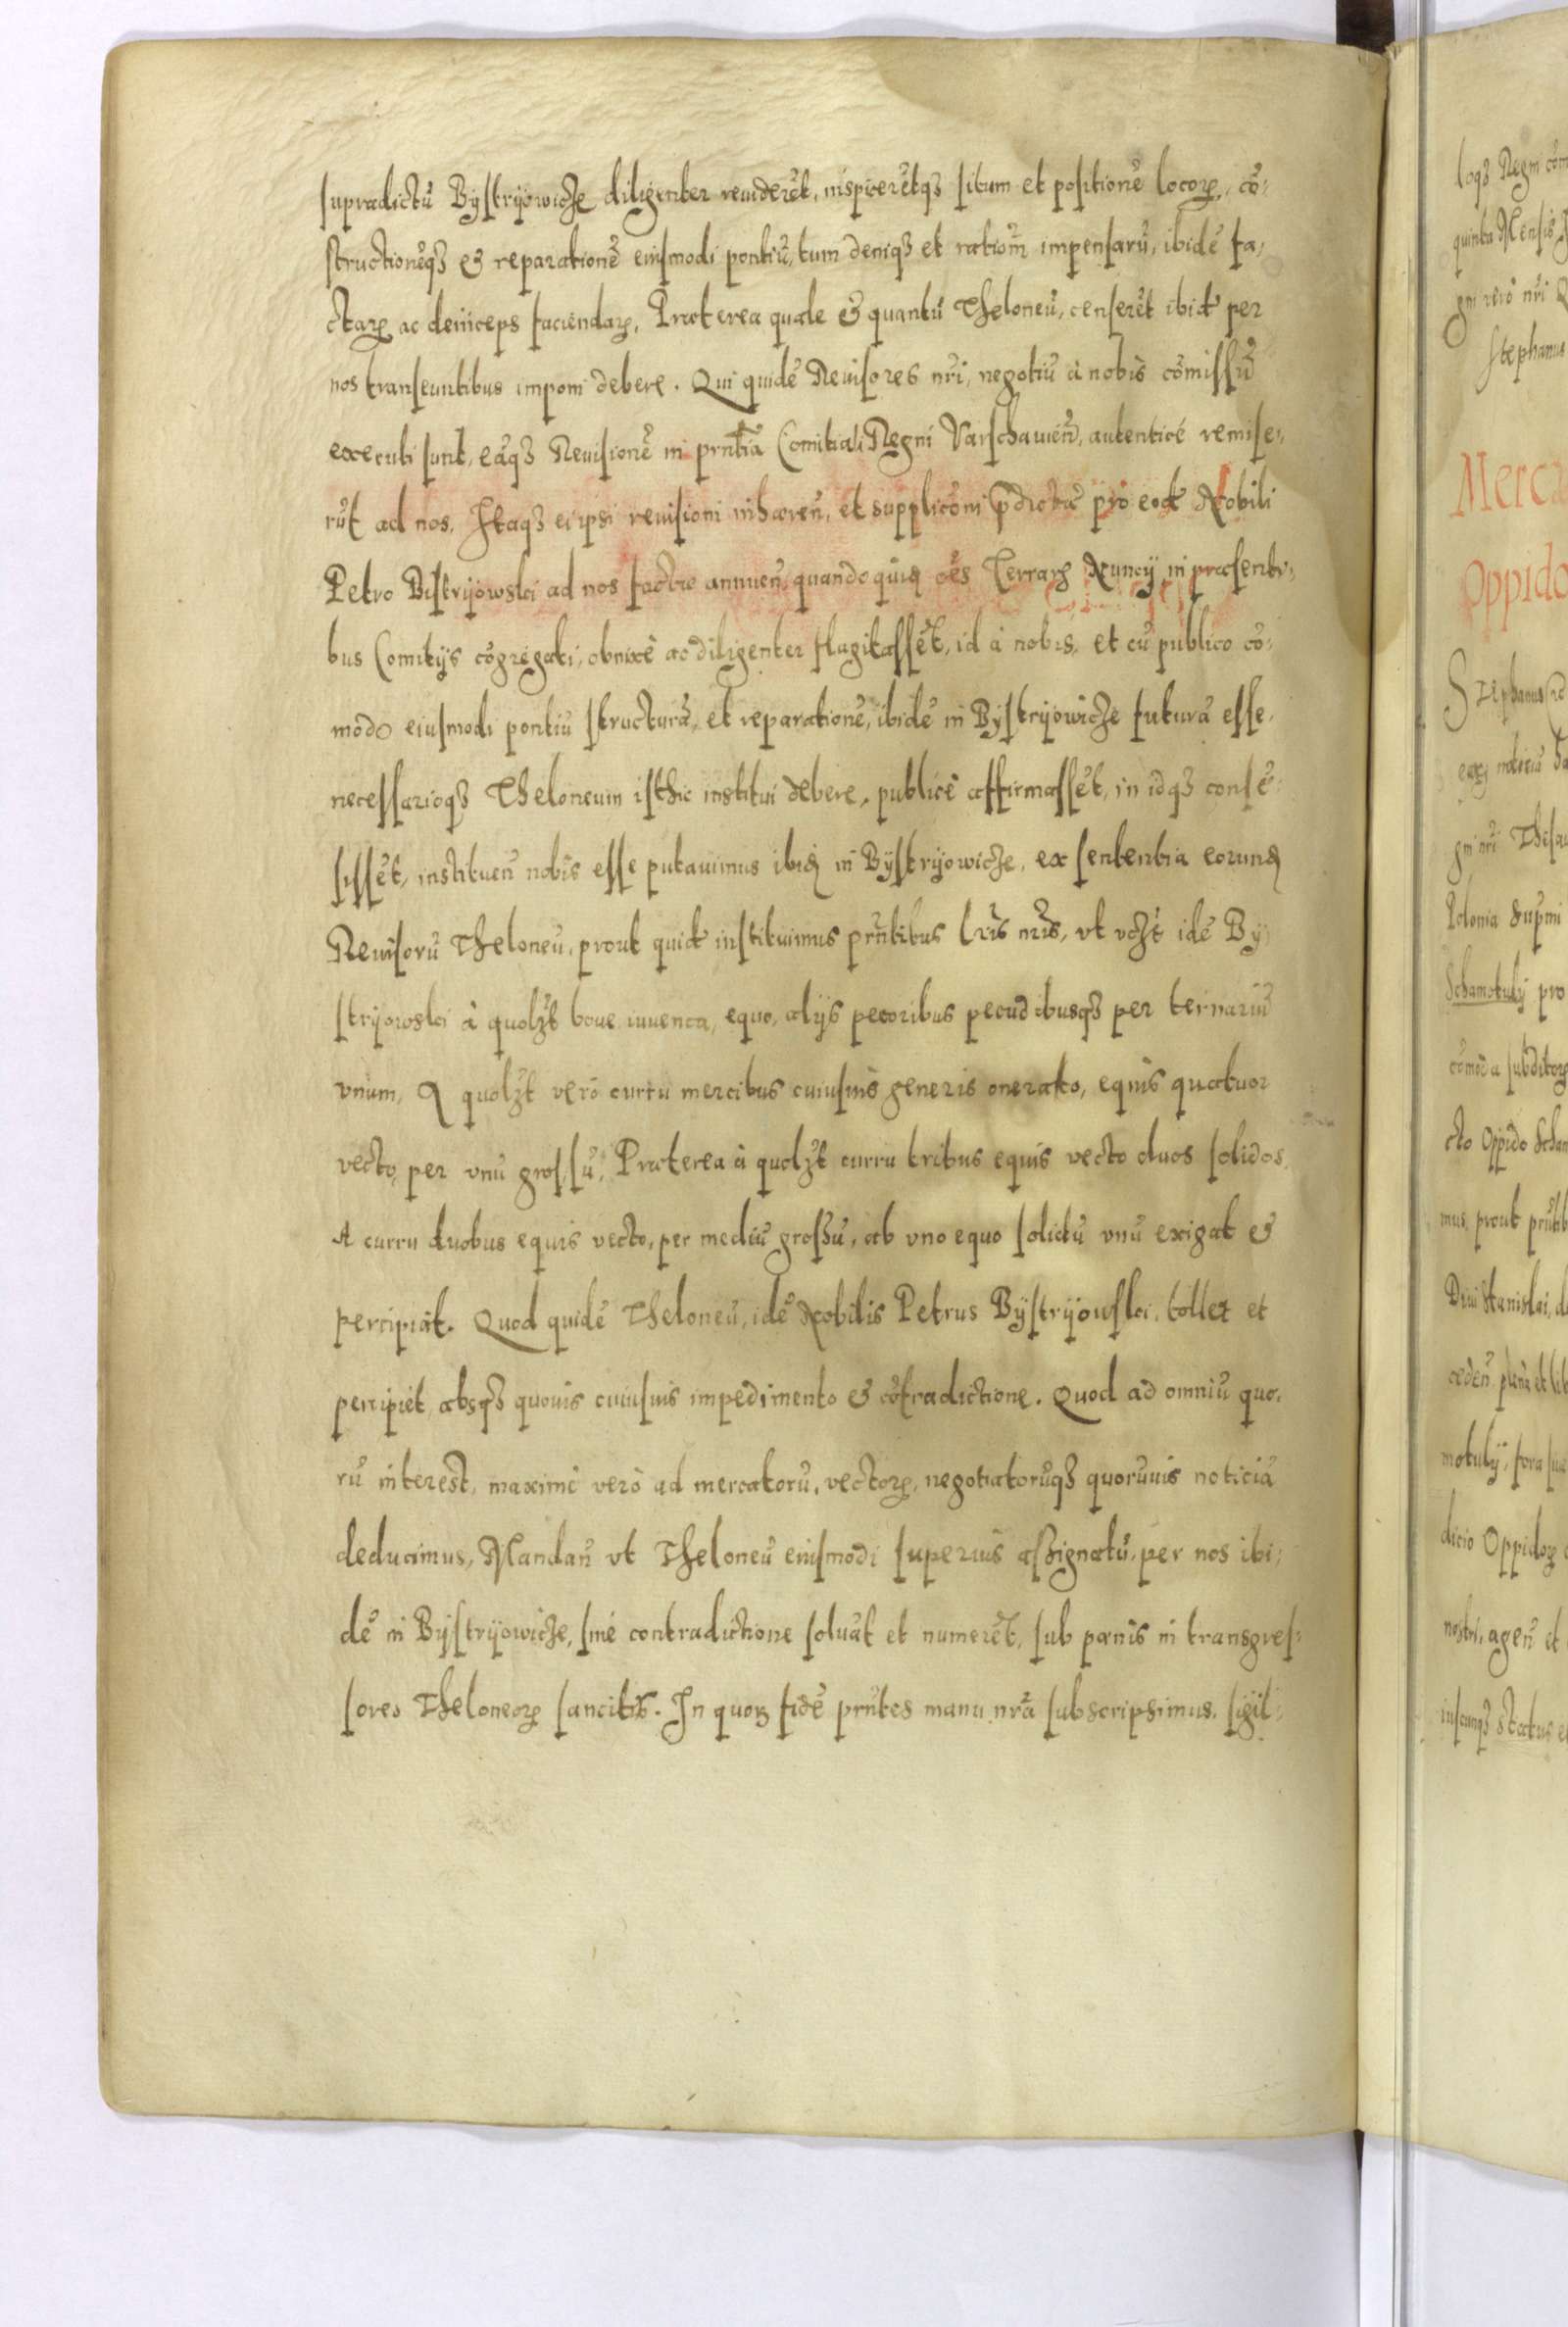 supradictũ Bÿstrÿowicze diligenter reuiderẽt, inspicerẽtqꝫ situm et positionẽ locoꝝ, cõ-
structionẽqꝫ & reparationẽ eiusmodi pontiũ, tum deniqꝫ et rationẽ impensarũ, ibidẽ fa-
ctaꝝ ac deinceps faciendaꝝ, Præterea quale & quantũ Theloneũ, censerẽt ibid per
nos transeuntibus imponi debere. Qui quidẽ Reuisores nr̃i, negotiũ à nobis cõmissũ
executi sunt, eãqꝫ Reuisionẽ in prñtia Comitiali Regni Varschauieñ, autenticè remise-
rũt ad nos. Itaqꝫ ei ipsi reuisioni inhæreñ, et supplicõni pdictæ pro eod Nobili
Petro Bistrÿowski ad nos factæ annueñ, quandoquidẽ oẽs Terraꝝ Nuncÿ in præsenti-
bus Comitÿs cõgregati, obnixè ac diligenter flagitassẽt, id à nobis, et cũ publico cõ-
modo eiusmodi pontiũ structurã, et reparationẽ, ibidẽ in Bÿstrÿowicze futurã esse,
necessarioqꝫ Theloneum isthic institui debere, publicè affirmassẽt, in idqꝫ consẽ-
sissẽt, institueñ nobis esse putauimus ibid in Bÿstrÿowicze, ex sententia eorund
Reuisorũ Theloneũ, prout quid instituimus prñtibus lr̃is nr̃is, vt vczt idẽ Bÿ-
strÿowski à quolzt boue iuuenca, equo, alÿs pecoribus pecudibusqꝫ per ternariũ
vnum, A quolzt verò curru mercibus cuiusuis generis onerato, equis quatuor
vecto, per vnũ grossũ, Præterea à quolzt curru tribus equis vecto duos solidos,
A curru duobus equis vecto, per mediũ grossũ, ab vno equo solidũ vnũ exigat &
percipiat. Quod quidẽ Theloneũ, idẽ Nobilis Petrus Bÿstrÿowski, tollet et
percipiet absqꝫ quouis cuiusuis impedimento & cõtradictione. Quod ad omniũ quo-
rũ interest, maximè verò ad mercatorũ, vectoꝝ, negotiatorũqꝫ quorũuis noticiã
deducimus, Mandañ vt Theloneũ eiusmodi superius assignatũ, per nos ibi-
dẽ in Bÿstrÿowicze, sine contradictione soluãt et numerẽt, sub pœnis in transgres-
sores Theloneoꝝ sancitis. In quoꝝ fidẽ prñtes manu nr̃a subscripsimus, sigil-
loqꝫ Regni
quinta Mensis
gni verò nr̃i
Stephanus
Merca
Oppido
Stephanus
gni nr̃i Thesau
Polonia
Schamotulÿ pro
cõmoda subditoꝝ
cto Oppido Scham
mus, prout prñtib
Diui Stanislai,
motulÿ, fora
dicio Oppidoꝝ
nostri, ageñ et
iuscunqꝫ status